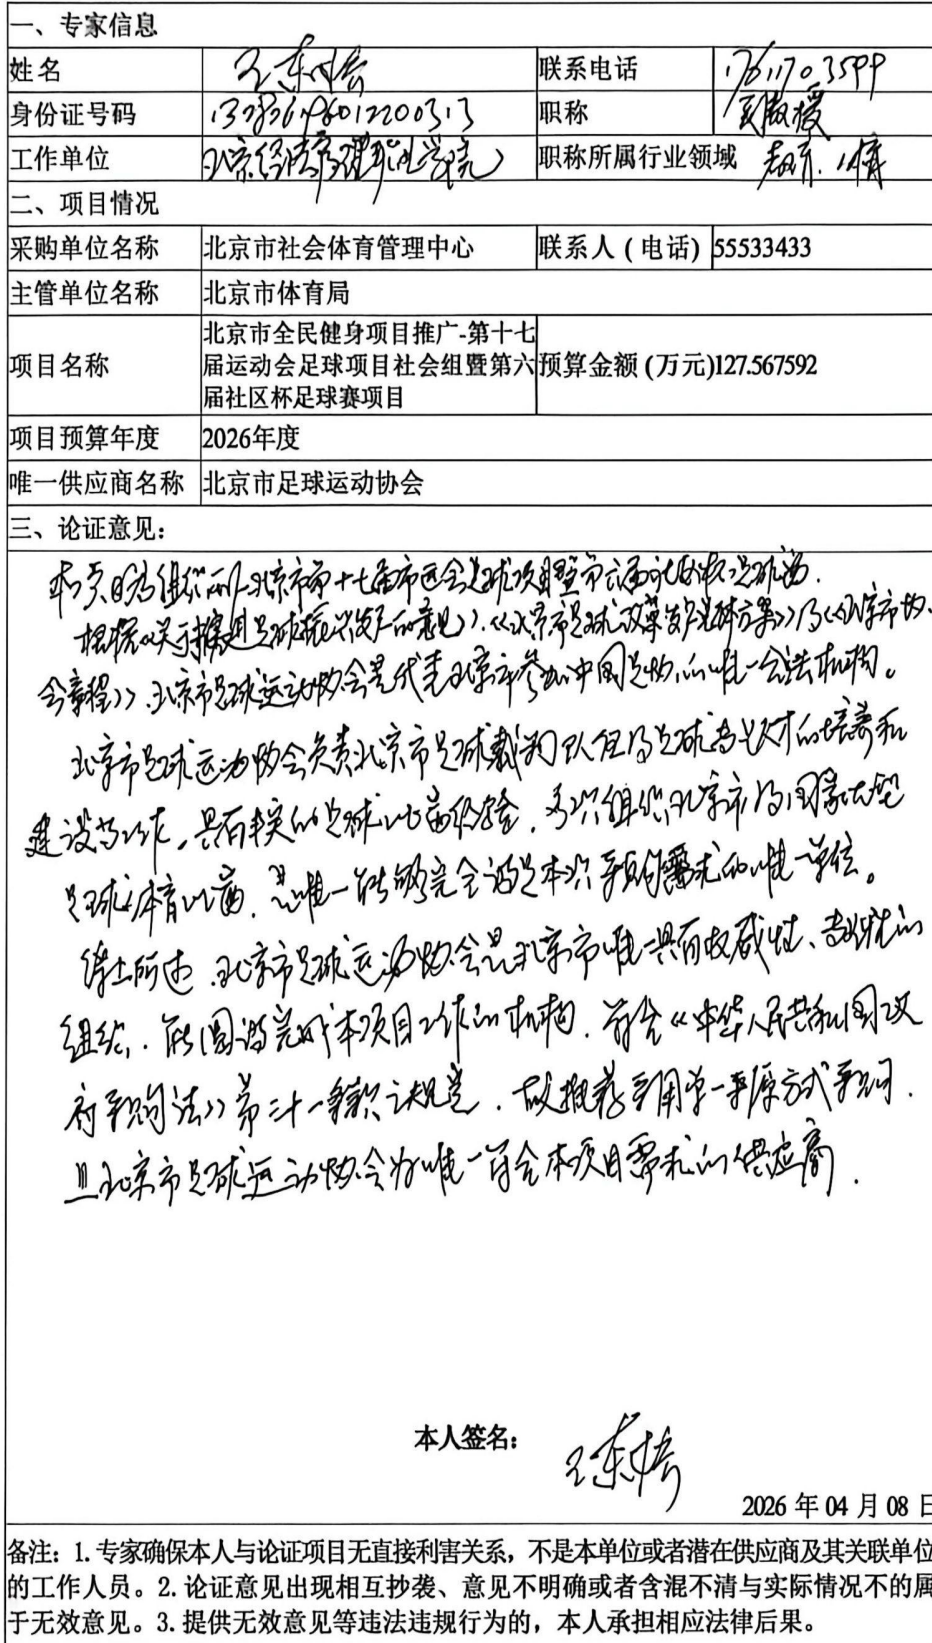 一、专家信息
姓名 王东 联系电话 17611703599
身份证号码 职称 副教授
工作单位 北京经济管理职业学院 职称所属行业领域 教育、体育
二、项目情况
采购单位名称 北京市社会体育管理中心 联系人（电话） 55533433
主管单位名称 北京市体育局
项目名称 北京市全民健身项目推广-第十七
届运动会足球项目社会组暨第六
届社区杯足球赛项目
预算金额 (万元) 127.567592
项目预算年度 2026年度
唯一供应商名称 北京市足球运动协会
三、论证意见：
本项目为组织北京市第十七届市运会足球项目暨第六届社区杯足球赛．
根据《关于推进足球振兴发展的意见》、《北京市足球改革发展总体方案》及《北京市协
会章程》，北京市足球运动协会是代表北京市参加中国足协的唯一合法机构。
北京市足球运动协会负责北京市足球裁判队伍及足球专业人才的培养和
建设等工作，具有丰富的足球比赛经验，多次组织北京市及国家大型
足球体育比赛，是唯一能够完全满足本次采购需求的唯一单位。
综上所述，北京市足球运动协会是北京市唯一具有权威性、专业性的
组织，能圆满完成本项目工作的机构，符合《中华人民共和国政
府采购法》第三十一条款之规定，故推荐采用单一来源方式采购，
且北京市足球运动协会为唯一符合本项目需求的供应商．
本人签名： 王东
2026 年 04 月 08 日
备注：1. 专家确保本人与论证项目无直接利害关系，不是本单位或者潜在供应商及其关联单位
的工作人员。2. 论证意见出现相互抄袭、意见不明确或者含混不清与实际情况不的属
于无效意见。3. 提供无效意见等违法违规行为的，本人承担相应法律后果。